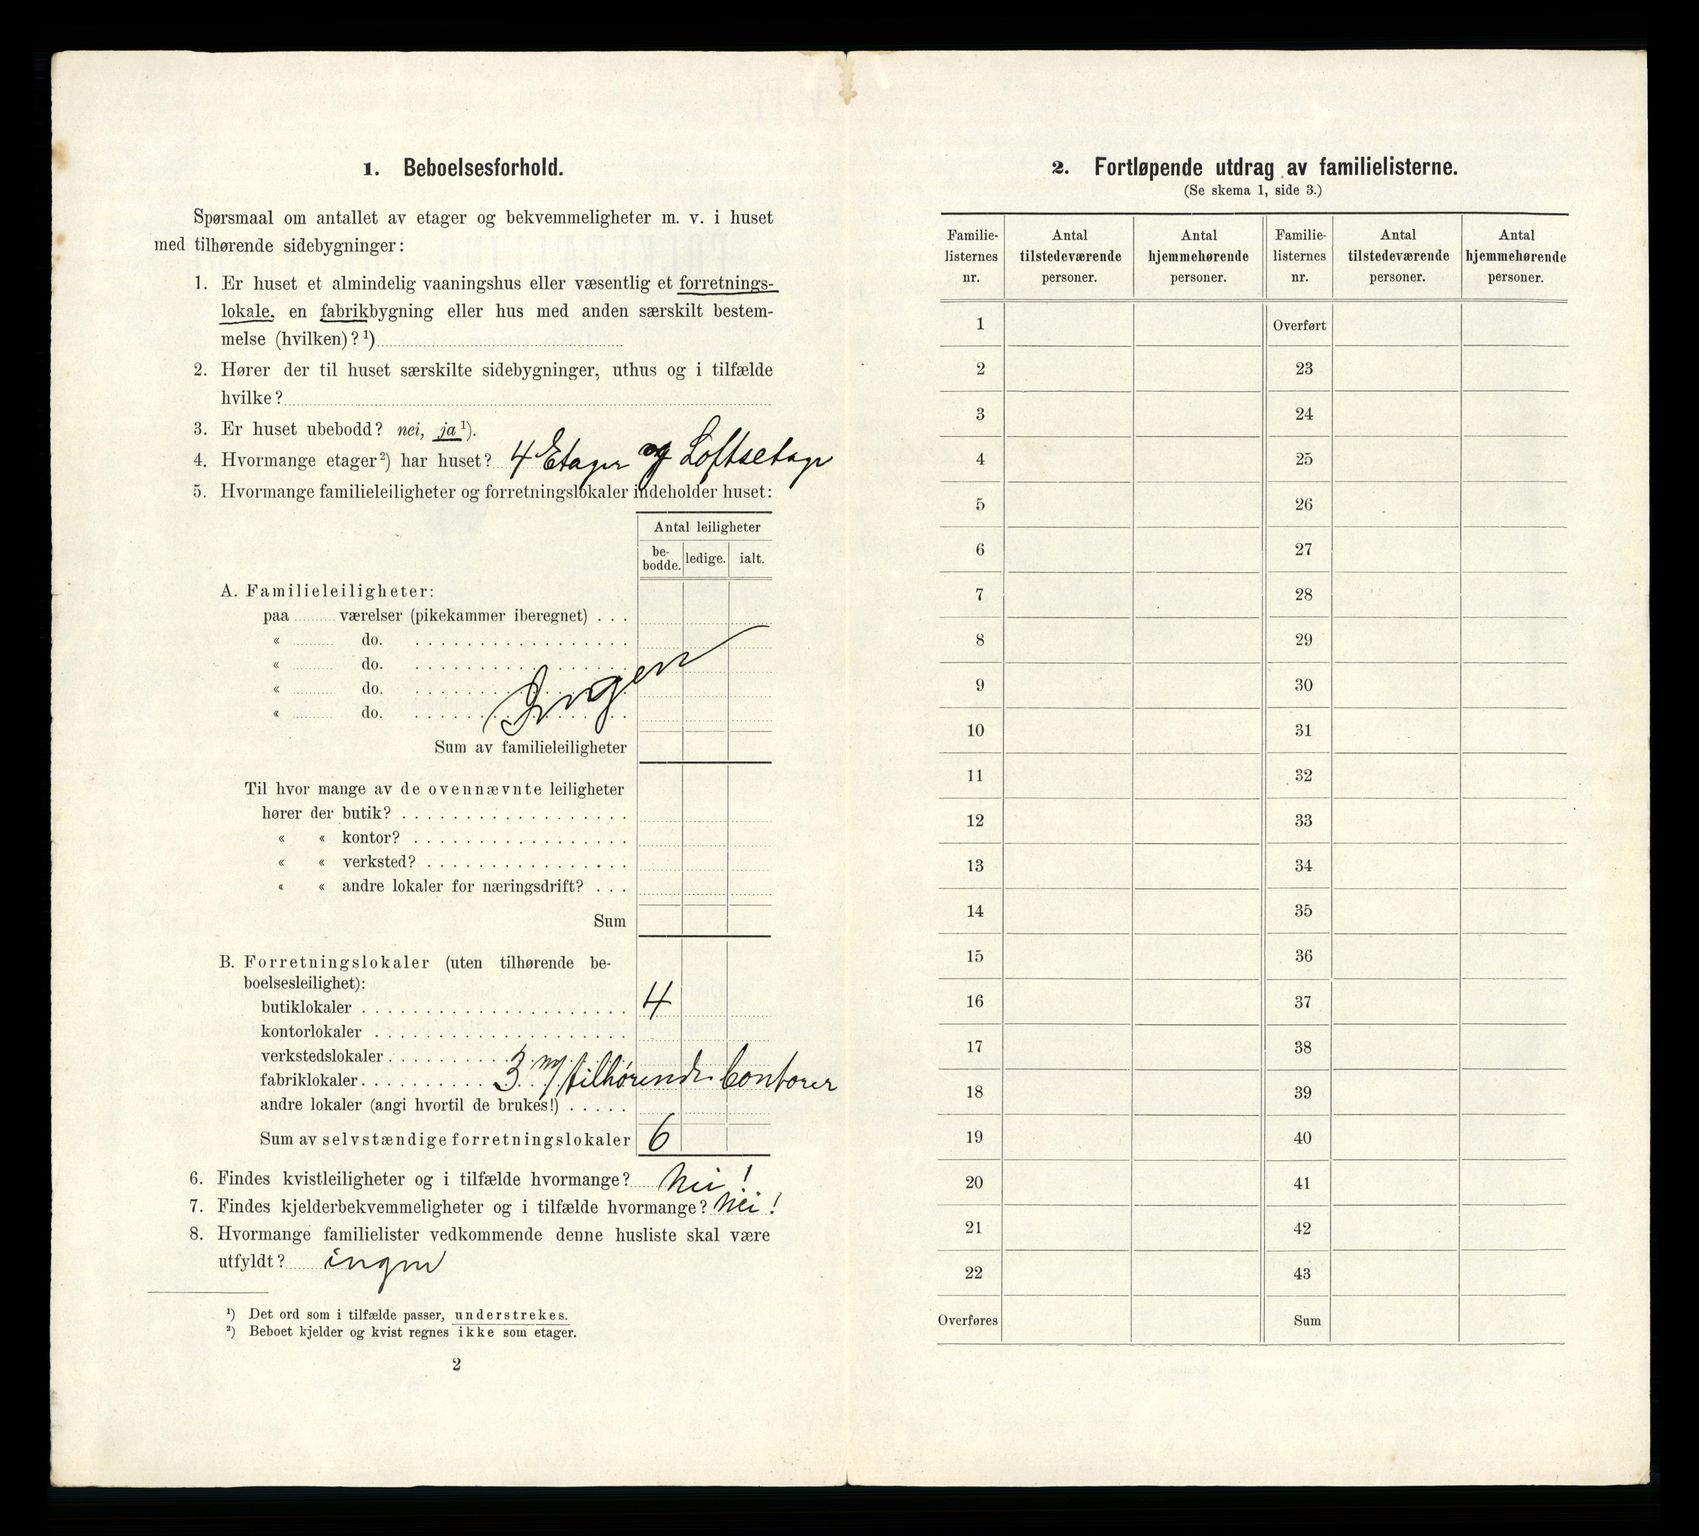 1. Beboelsesforhold.
Spørsmaal om antallet av etager og bekvemmeligheter m. v. i huset
med tilhørende sidebygninger:
1. Er huset et almindelig vaaningshus eller væsentlig et forretnings-
lokale, en fabrikbygning eller hus med anden særskilt bestem-
melse (hvilken)? ¹)
2. Hører der til huset særskilte sidebygninger, uthus og i tilfælde
hvilke?
3. Er huset ubebodd? nei, ja ¹).
4. Hvormange etager ²) har huset? 4 Etager og Loftsetage
5. Hvormange familieleiligheter og forretningslokaler indeholder huset:
Antal leiligheter
be-
bodde. ledige. ialt.
A. Familieleiligheter:
paa ......... værelser (pikekammer iberegnet) . . .
« ......... do. . . . . . . . . . . . . . . . . . .
« ......... do. . . . . . . . . . . . . . . . . . .
« ......... do. . . . . . . . . . . . . . . . . . .
« ......... do. . . . . . . . . . . . . . . . . . .
Ingen
Sum av familieleiligheter
Til hvor mange av de ovennævnte leiligheter
hører der butik? . . . . . . . . . . . . . . . . . .
« « kontor? . . . . . . . . . . . . . . . . .
« « verksted? . . . . . . . . . . . . . . . .
« « andre lokaler for næringsdrift? . . .
Sum
B. Forretningslokaler (uten tilhørende be-
boelsesleilighet):
butiklokaler . . . . . . . . . . . . . . . . . . . . 4
kontorlokaler . . . . . . . . . . . . . . . . . . .
verkstedslokaler . . . . . . . . . . . . . . . . . .
fabriklokaler . . . . . . . . . . 3 m/ tilhørende Contorer
andre lokaler (angi hvortil de brukes!) . . . . .
Sum av selvstændige forretningslokaler 6
6. Findes kvistleiligheter og i tilfælde hvormange? Nei !
7. Findes kjelderbekvemmeligheter og i tilfælde hvormange? Nei !
8. Hvormange familielister vedkommende denne husliste skal være
utfyldt? ingen
¹) Det ord som i tilfælde passer, understrekes.
²) Beboet kjelder og kvist regnes ikke som etager.
2
2. Fortløpende utdrag av familielisterne.
(Se skema 1, side 3.)
Familie- Antal Antal Familie- Antal Antal
listernes tilstedeværende hjemmehørende listernes tilstedeværende hjemmehørende
nr. personer. personer. nr. personer. personer.
1 Overført
2 23
3 24
4 25
5 26
6 27
7 28
8 29
9 30
10 31
11 32
12 33
13 34
14 35
15 36
16 37
17 38
18 39
19 40
20 41
21 42
22 43
Overføres Sum